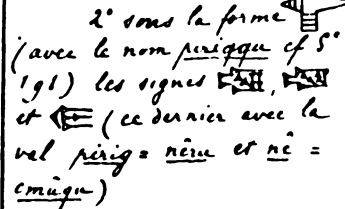 2° sous la forme
(avec le nom piriggu cf 5°
191) les signes ,
et (ce dernier avec la
val pirig = nêru et nê =
emûqu)